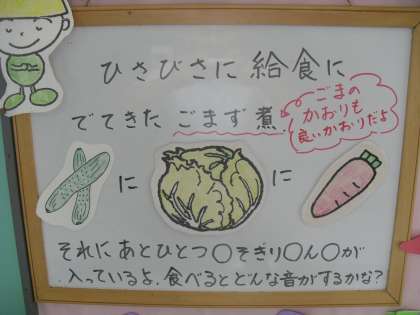 ひさびさに 給食に
でてきた ごまず煮.
ごまの
かおりも
良いかおりだよ
に
に
それに あとひとつ ○そぎり○ん○が
入っているよ.食べるとどんな音がするかな?